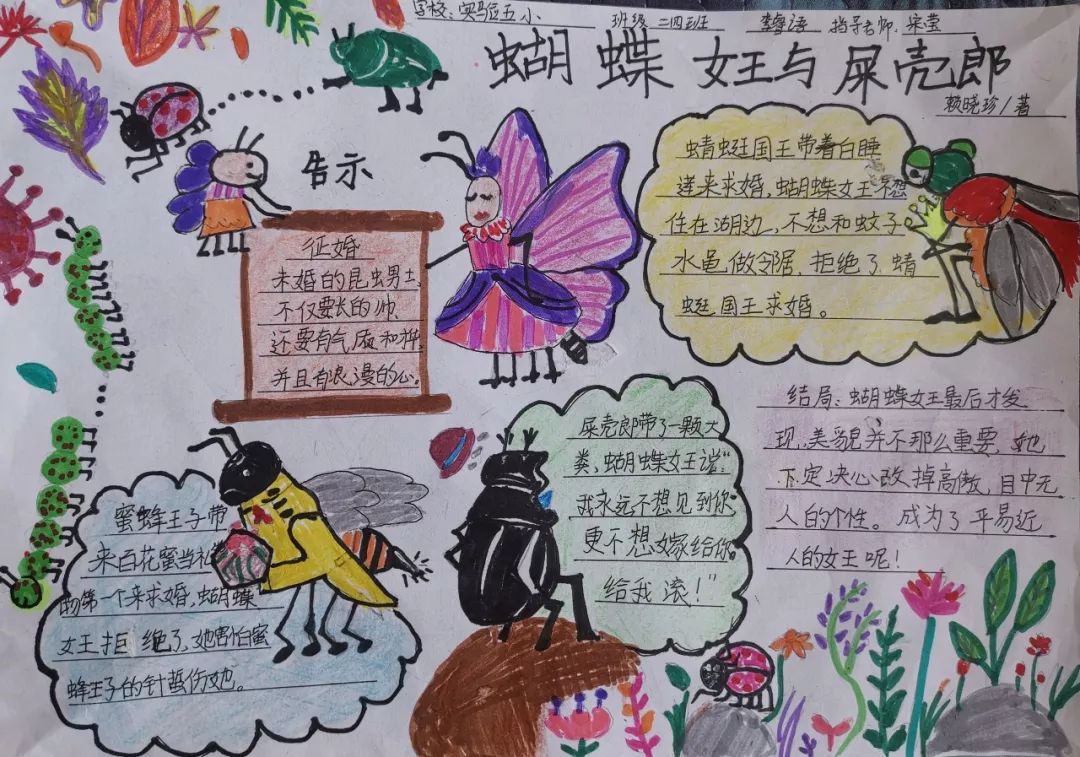 学校：实验五小 班级 二四班 李睿语 指导老师：宋莹
蝴蝶女王与屎壳郎
赖晓珍/著
告示
征婚
未婚的昆虫男士，
不仅要长的帅
还要有气质和神，
并且有浪漫的心。
蜻蜓国王带着白睡
莲来求婚，蝴蝶女王不想
住在湖边，不想和蚊子
水黾做邻居，拒绝了蜻
蜓国王求婚。
屎壳郎带了一颗大
粪，蝴蝶女王说：“
我永远不想见到你
更不想嫁给你。
给我滚！”
结局：蝴蝶女王最后才发
现，美貌并不那么重要，她
下定决心改掉高傲，目中无
人的个性。成为了平易近
人的女王呢！
蜜蜂王子带
来百花蜜当礼
物第一个来求婚，蝴蝶
女王拒绝了，她害怕蜜
蜂王子的针蜇伤她。